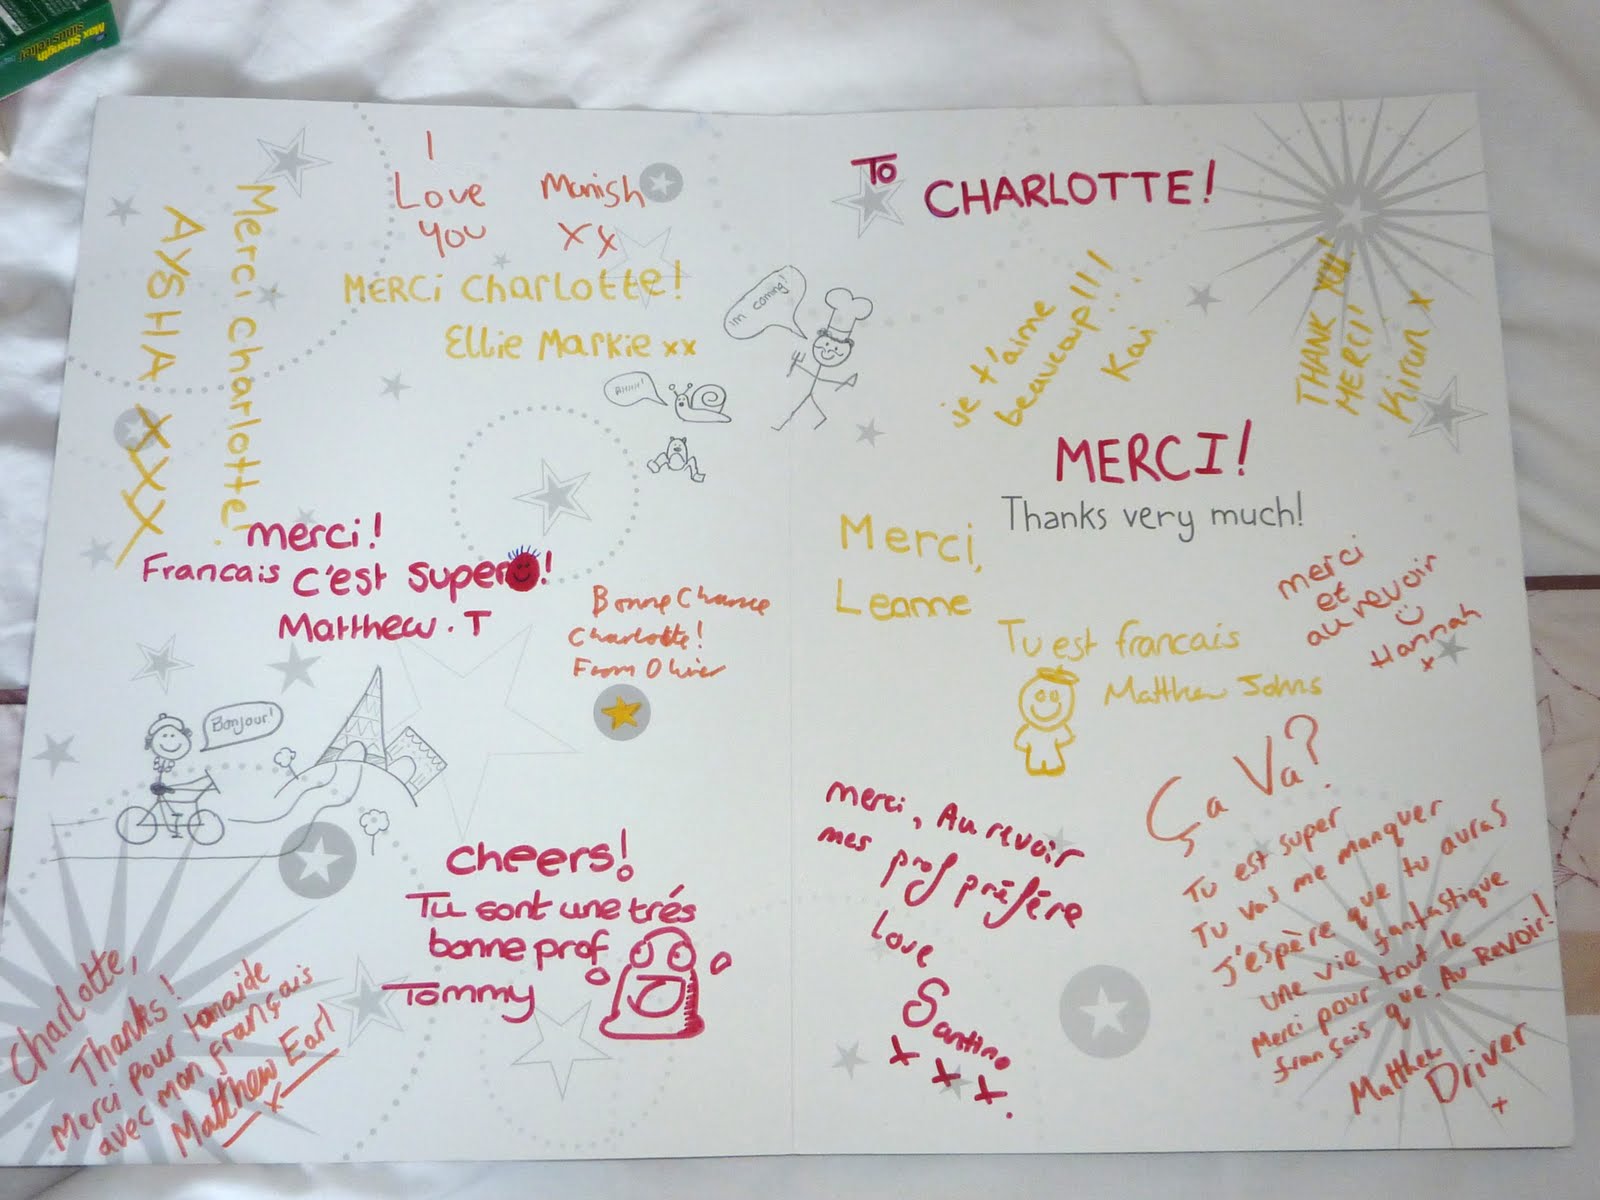 Max Strength
sinus relief
I
Love
you
Manish
XX
Merci Charlotte!
AYSHA XXX
MERCi Charlotte!
Ellie Markie xx
im coming!
Ahhhh!
merci!
Francais c'est super!
Matthew.T
Bonne Chance
Charlotte!
From Oliver
Bonjour!
cheers!
Tu sont une trés
bonne prof
Tommy
Charlotte,
Thanks!
Merci pour tonaide
avec mon français
Matthew Earl
x
To
CHARLOTTE!
je t'aime
beaucoup!!!
Kai
THANK YOU!
MERCI!
Kiran x
MERCI!
Thanks very much!
Merci,
Leanne
merci
et
au revoir
Hannah
x
Tu est francais
Matthew Johns
merci, Au revoir
mes prof préfére
Love
Santino
x x x.
Ça Va?
Tu est super
Tu vas me manquer
J'espère que tu auras
une vie fantastique
Merci pour tout le
français que. Au Revoir!
Matthew
Driver
x